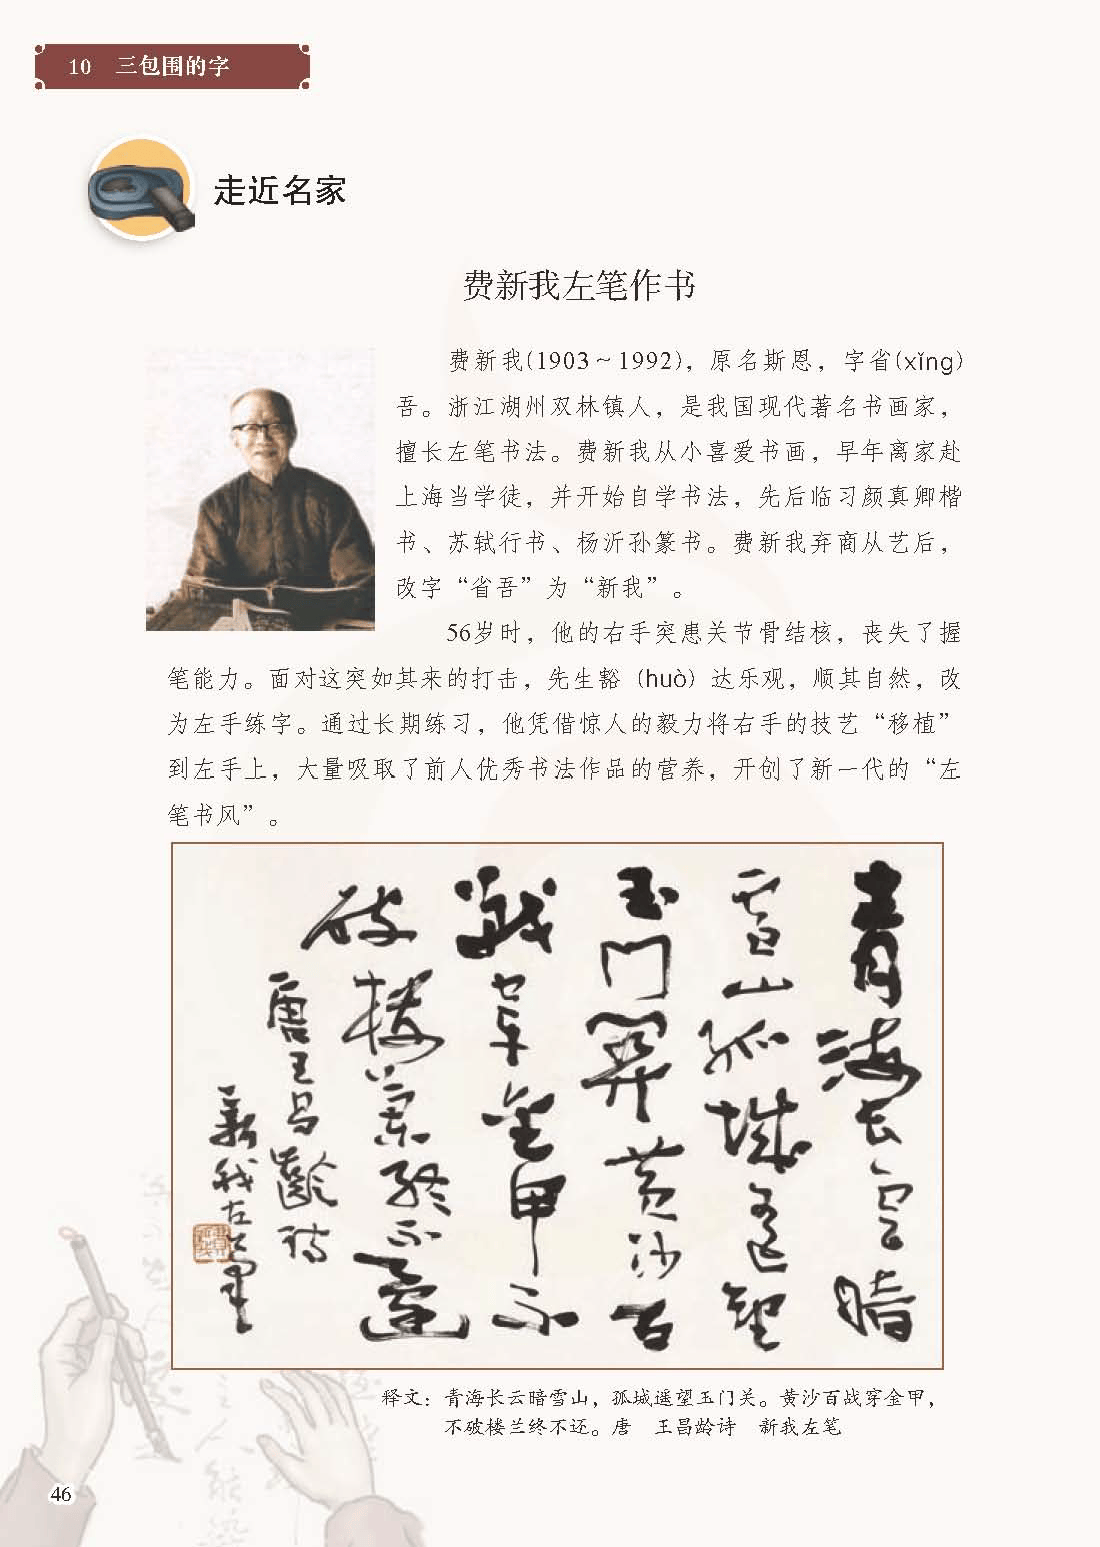 10 三包围的字
走近名家
费新我左笔作书
费新我(1903～1992)，原名斯恩，字省(xǐng)
吾。浙江湖州双林镇人，是我国现代著名书画家，
擅长左笔书法。费新我从小喜爱书画，早年离家赴
上海当学徒，并开始自学书法，先后临习颜真卿楷
书、苏轼行书、杨沂孙篆书。费新我弃商从艺后，
改字“省吾”为“新我”。
56岁时，他的右手突患关节骨结核，丧失了握
笔能力。面对这突如其来的打击，先生豁（huò）达乐观，顺其自然，改
为左手练字。通过长期练习，他凭借惊人的毅力将右手的技艺“移植”
到左手上，大量吸取了前人优秀书法作品的营养，开创了新一代的“左
笔书风”。
青海长云暗
雪山孤城遥望
玉门关黄沙百
战穿金甲不
破楼兰终不还
唐王昌龄诗
新我左笔
释文：青海长云暗雪山，孤城遥望玉门关。黄沙百战穿金甲，
不破楼兰终不还。唐 王昌龄诗 新我左笔
46